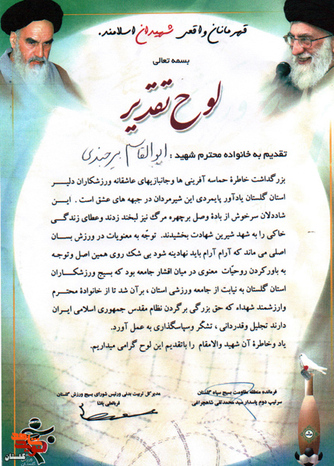 قهرمانان واقعی شهیدان اسلامند.
بسمه تعالی
لوح تقدیر
تقدیم به خانواده محترم شهید: ابوالقاسم بیرجندی
بزرگداشت خاطرهٔ حماسه آفرینی ها وجانبازیهای عاشقانه ورزشکاران دلیر
استان گلستان یادآور پایمردی این شیرمردان در جبهه های عشق است. این
شاددلان سرخوش از بادهٔ وصل برچهره مرگ نیز لبخند زدند وعطای زندگی
خاکی را به شهد شیرین شهادت بخشیدند. توجّه به معنویات در ورزش بسان
اصلی ماند که آرام آرام باید نهادینه شود بی شک روی همین اصل وتوجه
به باورکردن روحیّات معنوی در میان اقشار جامعه بود که بسیج ورزشکاران
استان گلستان به نیابت از جامعه ورزشی استان، برآن شد تا از خانوادهٔ محترم
وارزشمند شهداء که حق بزرگی برگردن نظام مقدس جمهوری اسلامی ایران
دارند تجلیل وقدردانی، تشکر وسپاسگذاری به عمل آورد.
یاد وخاطرهٔ آن شهید والامقام را باتقدیم این لوح گرامی میداریم.
فرمانده منطقه مقاومت بسیج سپاه گلستان
سرتیپ دوم پاسدار سید محمدتقی شاهچراغی
مدیرکل تربیت بدنی ورئیس شورای بسیج ورزش گلستان
قربانعلی پانا
گلستان